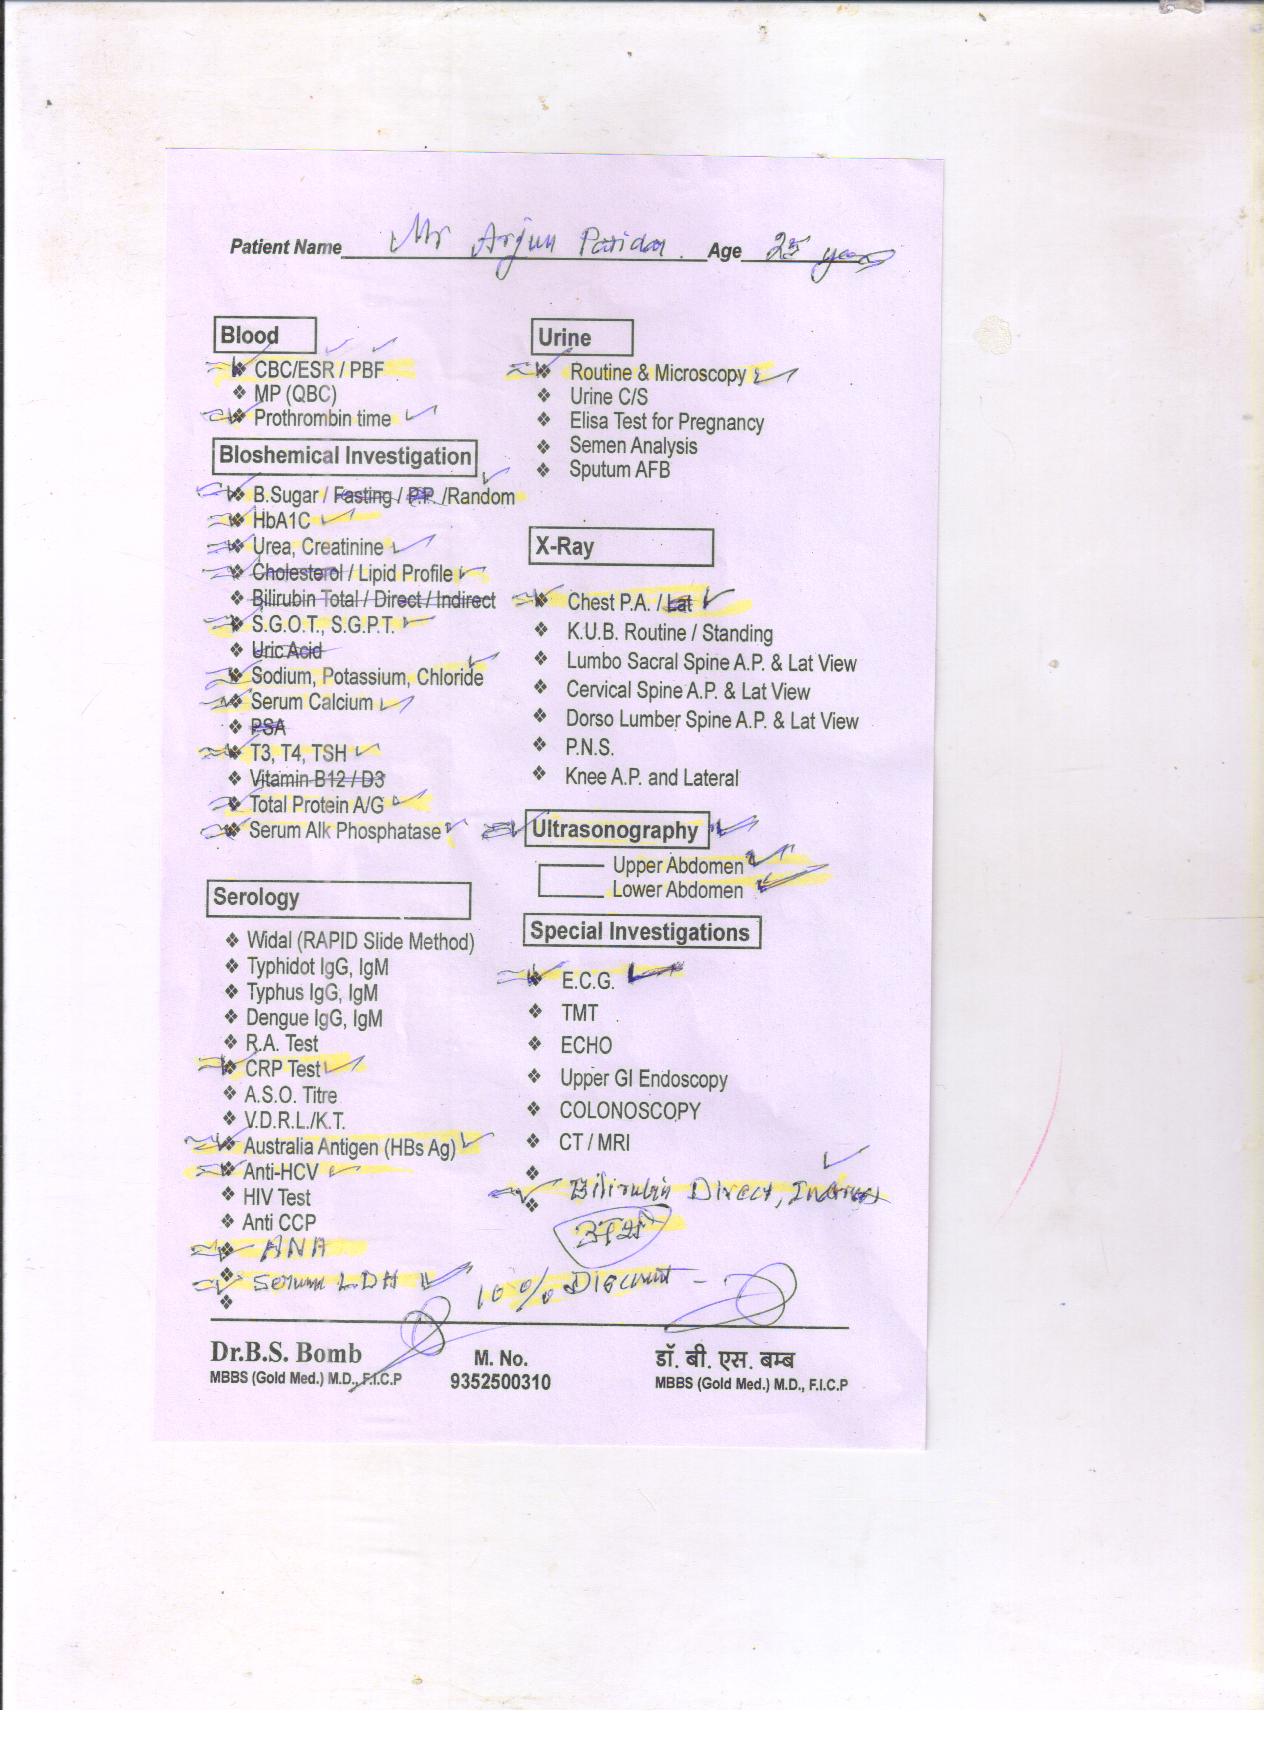 Patient Name Mr Arjun Patidar Age 25 years
Blood
❖ CBC/ESR / PBF
❖ MP (QBC)
❖ Prothrombin time
Bloshemical Investigation
❖ B.Sugar / Fasting / P.P. /Random
❖ HbA1C
❖ Urea, Creatinine
❖ Cholesterol / Lipid Profile
❖ Bilirubin Total / Direct / Indirect
❖ S.G.O.T., S.G.P.T.
❖ Uric Acid
❖ Sodium, Potassium, Chloride
❖ Serum Calcium
❖ PSA
❖ T3, T4, TSH
❖ Vitamin B12 / D3
❖ Total Protein A/G
❖ Serum Alk Phosphatase
Serology
❖ Widal (RAPID Slide Method)
❖ Typhidot IgG, IgM
❖ Typhus IgG, IgM
❖ Dengue IgG, IgM
❖ R.A. Test
❖ CRP Test
❖ A.S.O. Titre
❖ V.D.R.L./K.T.
❖ Australia Antigen (HBs Ag)
❖ Anti-HCV
❖ HIV Test
❖ Anti CCP
❖ ANA
❖ Serum LDH
Urine
❖ Routine & Microscopy
❖ Urine C/S
❖ Elisa Test for Pregnancy
❖ Semen Analysis
❖ Sputum AFB
X-Ray
❖ Chest P.A. / Lat
❖ K.U.B. Routine / Standing
❖ Lumbo Sacral Spine A.P. & Lat View
❖ Cervical Spine A.P. & Lat View
❖ Dorso Lumber Spine A.P. & Lat View
❖ P.N.S.
❖ Knee A.P. and Lateral
Ultrasonography
Upper Abdomen
Lower Abdomen
Special Investigations
❖ E.C.G.
❖ TMT
❖ ECHO
❖ Upper GI Endoscopy
❖ COLONOSCOPY
❖ CT / MRI
❖ Bilirubin Direct, Indirect
10% Discount -
Dr.B.S. Bomb
MBBS (Gold Med.) M.D., F.I.C.P
M. No.
9352500310
डॉ. बी. एस. बम्ब
MBBS (Gold Med.) M.D., F.I.C.P